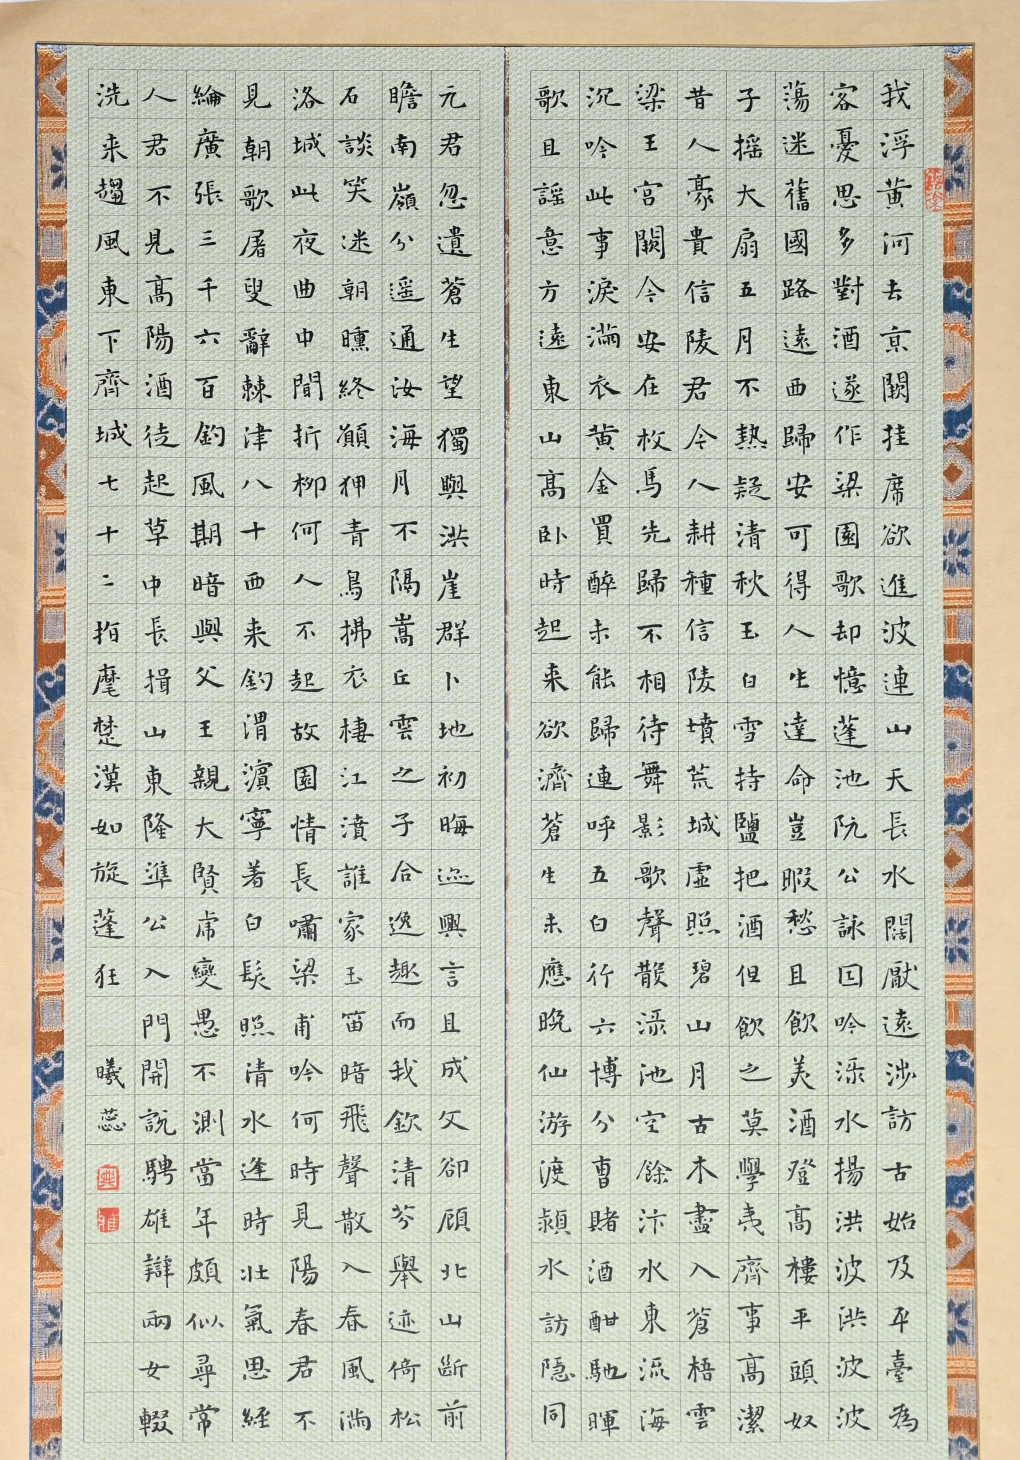 我浮黄河去京闕挂席欲進波連山天長水闊厭遠涉訪古始及平臺為
客憂思多對酒遂作梁園歌却憶蓬池阮公詠因吟渌水揚洪波洪波波
蕩迷舊國路遠西歸安可得人生達命豈暇愁且飲美酒登高樓平頭奴
子摇大扇五月不熱疑清秋玉白雪持鹽把酒但飲之莫學夷齊事高潔
昔人豪貴信陵君今人耕種信陵墳荒城虛照碧山月古木盡入蒼梧雲
梁王宮闕今安在枚馬先歸不相待舞影歌聲散渌池空餘汴水東流海
沉吟此事淚滿衣黄金買醉未能歸連呼五白行六博分曹賭酒酣馳暉
歌且謠意方遠東山高卧時起来欲濟蒼生未應晚仙游渡潁水訪隱同
元君忽遺蒼生望獨與洪崖群卜地初晦迹興言且成文卻顧北山斷前
瞻南嶺分遥通汝海月不隔嵩丘雲之子合逸趣而我欽清芬舉迹倚松
石談笑迷朝曛終願狎青鳥拂衣棲江濆誰家玉笛暗飛聲散入春風滿
洛城此夜曲中聞折柳何人不起故園情長嘯梁甫吟何時見陽春君不
見朝歌屠叟辭棘津八十西来釣渭濱寧羞白髮照清水逢時壯氣思經
綸廣張三千六百釣風期暗與文王親大賢虎變愚不測當年頗似尋常
人君不見高陽酒徒起草中長揖山東隆準公入門開說騁雄辯兩女輟
洗来趨風東下齊城七十二指麾楚漢如旋蓬狂 曦蕊